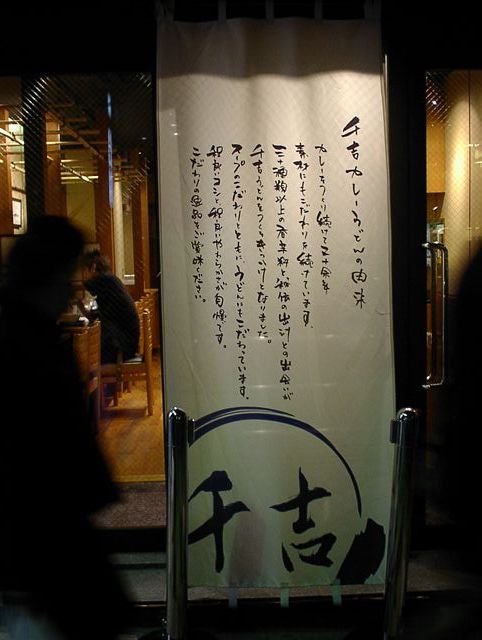 千吉カレーうどんの由来
カレーをつくり続けて三十余年
素材にもこだわりを続けています。
三十種類以上の香辛料と、秘伝の出汁との出会いが
千吉うどんをつくるきっかけとなりました。
スープのこだわりとともに、うどんにもこだわっています。
程良いコシと程良いやわらかさが自慢です。
こだわりの逸品をご賞味ください。
千吉